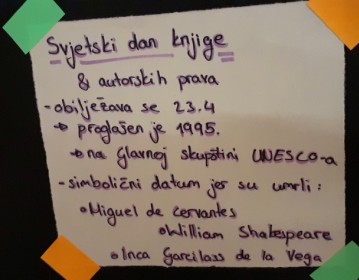 Svjetski dan knjige
& autorskih prava
- obilježava se 23.4
→ proglašen je 1995.
→ na Glavnoj skupštini UNESCO-a
- simbolični datum jer su umrli:
• Miguel de Cervantes
• William Shakespeare
• Inca Garcilass de la Vega